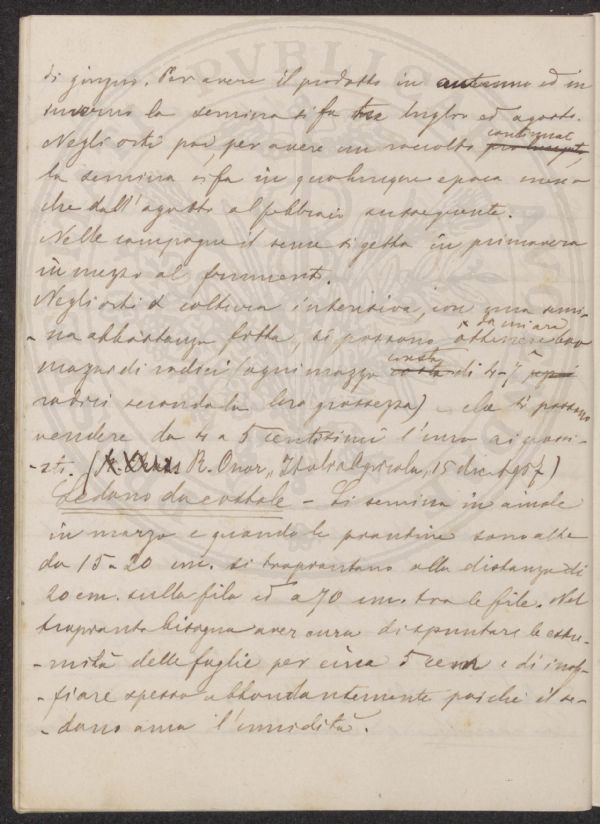 di giugno. Per avere il prodotto in autunno ed in
inverno la semina si fa tra luglio ed agosto.
Negli orti poi per avere un raccolto continuat
la semina si fa in qualunque epoca meno
che dall'agosto al febbraio susseguente.
Nelle campagne il seme si getta in primavera
in mezzo al frumento.
Negli orti a coltura intensiva, con una semi-
-na abbastanza fitta, si possono ottenere da un'ara 600
mazzi di radici (ogni mazzo consta di 4-7
radici secondo la loro grossezza) che si possono
vendere da 4 a 5 centesimi l'uno ai
-sti. (R. Onor, Italia Agricola, 15 dic.
Sedano da costole - Si semina in aiuole
in marzo e quando le piantine sono alte
da 15-20 cm. si trapiantano alla distanza di
20 cm. sulla fila ed a 70 cm. tra le file. Nel
trapianto bisogna aver cura di spuntare le estre-
-mità delle foglie per circa 5 cem e di inaf-
-fiare spesso abbondantemente poiché il se-
-dano ama l'umidità.